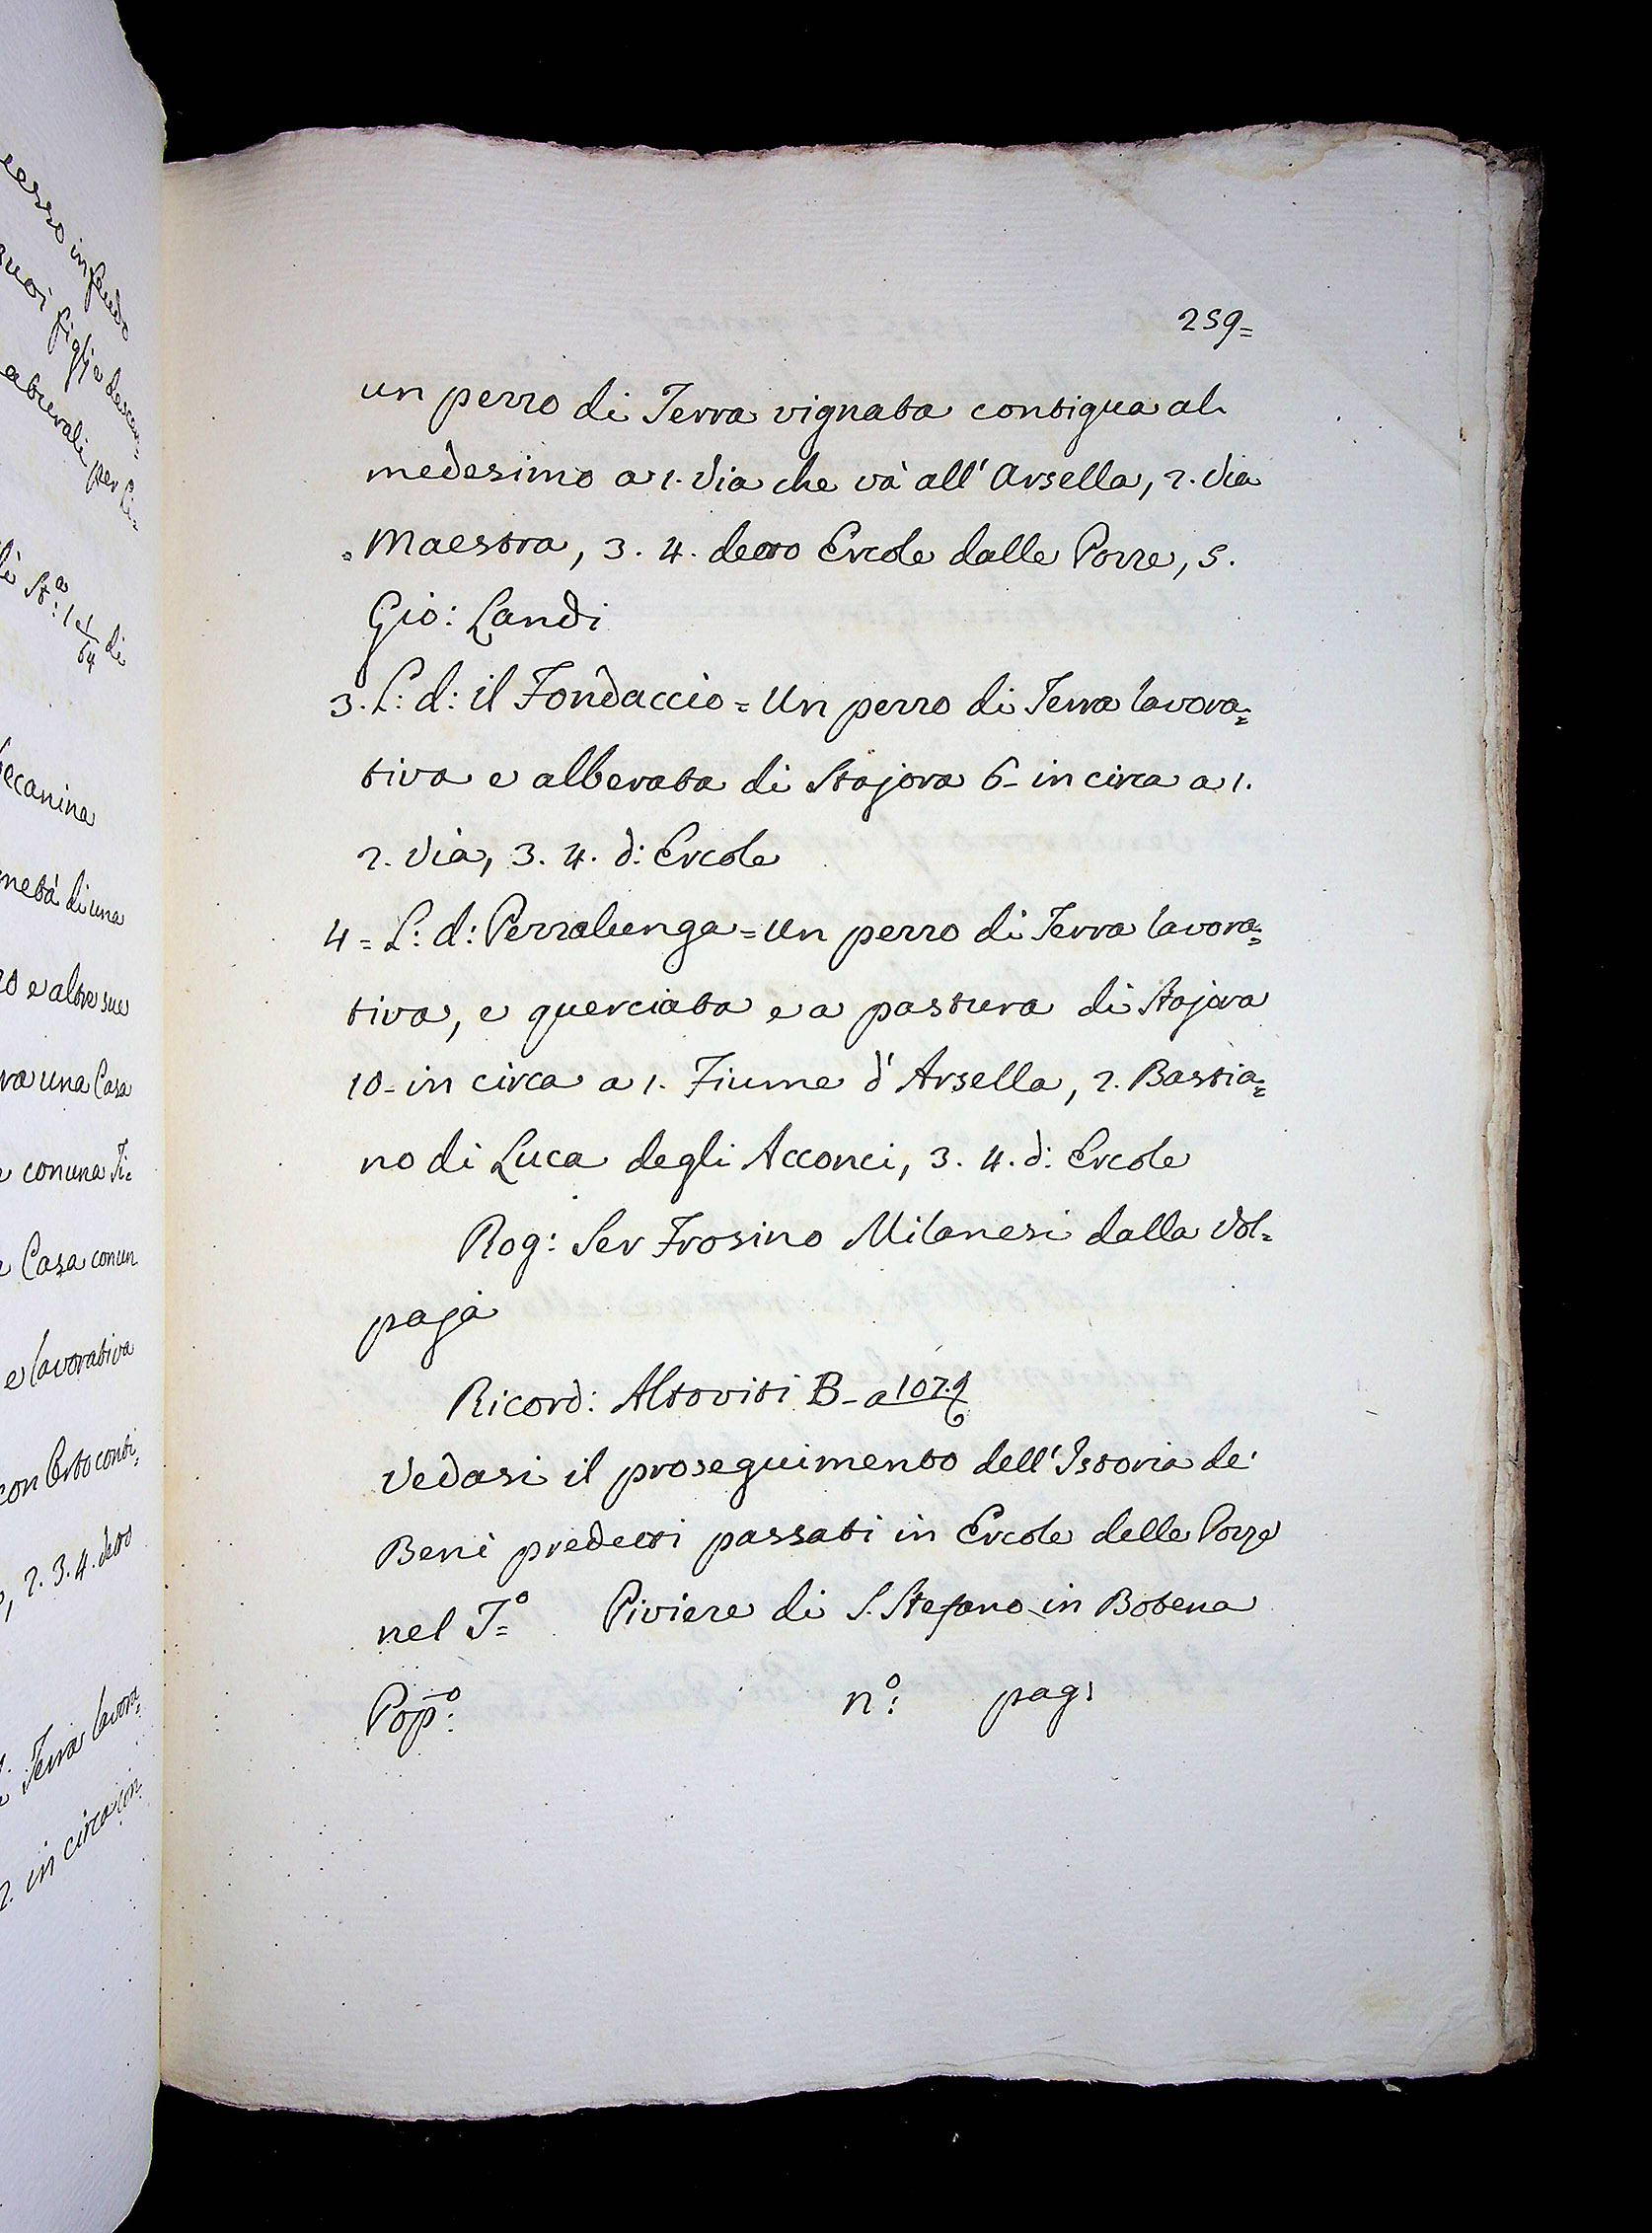 259=
un pezzo di Terra vignata contigua al
medesimo a 1. Via che và all' Arsella, 2. Via
Maestra, 3. 4. detto Ercole dalle Pozze, 5.
Gio: Landi
3. L: d: il Fondaccio = Un pezzo di Terra lavora=
tiva e alberata di Stajora 6- in circa a 1.
2. Via, 3. 4. d: Ercole
4= L: d: Pezzalunga = Un pezzo di Terra lavora=
tiva, e querciata e a pastura di Stajora
10- in circa a 1. Fiume d' Arsella, 2. Bastia=
no di Luca degli Acconci, 3. 4. d: Ercole
Rog: Ser Frosino Milanesi dalla Vol=
paja
Ricord: Altoviti B- a 107.
Vedasi il proseguimento dell' Istoria de'
Beni predetti passati in Ercole delle Pozze
nel T.º Piviere di S. Stefano in Botena
Pop:º nº: pag:
in feudo
suoi figlj e descen=
aturali per
St:ª 1 1/64 di
metà di una
e altre sue
una Casa
con una
Casa con un
e lavorativa
con Orto conti=
, 2. 3. 4. detto
Terra lavora=
2. in circa con